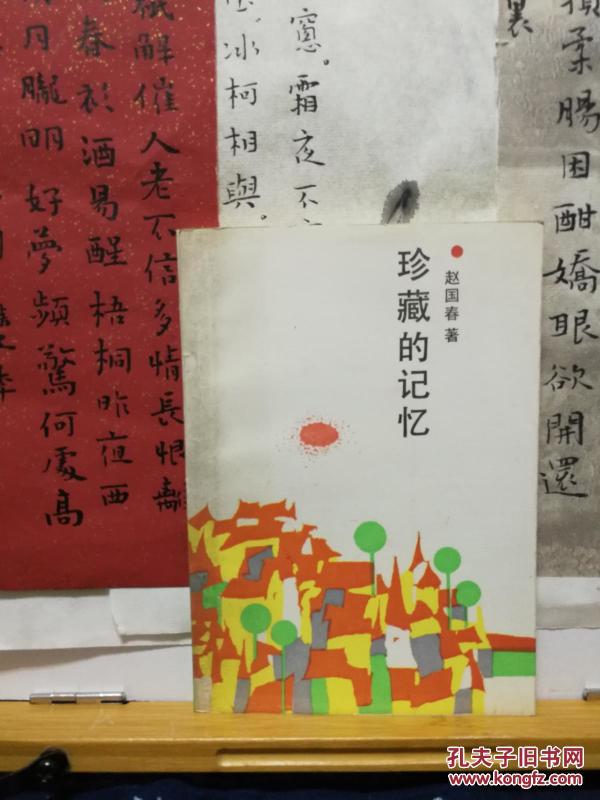 損柔腸困酣嬌眼欲開還
裏
窓。霜夜不
冰柯相與。
祇解催人老不信多情長恨離
春衫酒易醒梧桐昨夜西
月朧明好夢頻驚何處高
赵国春 著
珍藏的记忆
孔夫子旧书网
www.kongfz.com